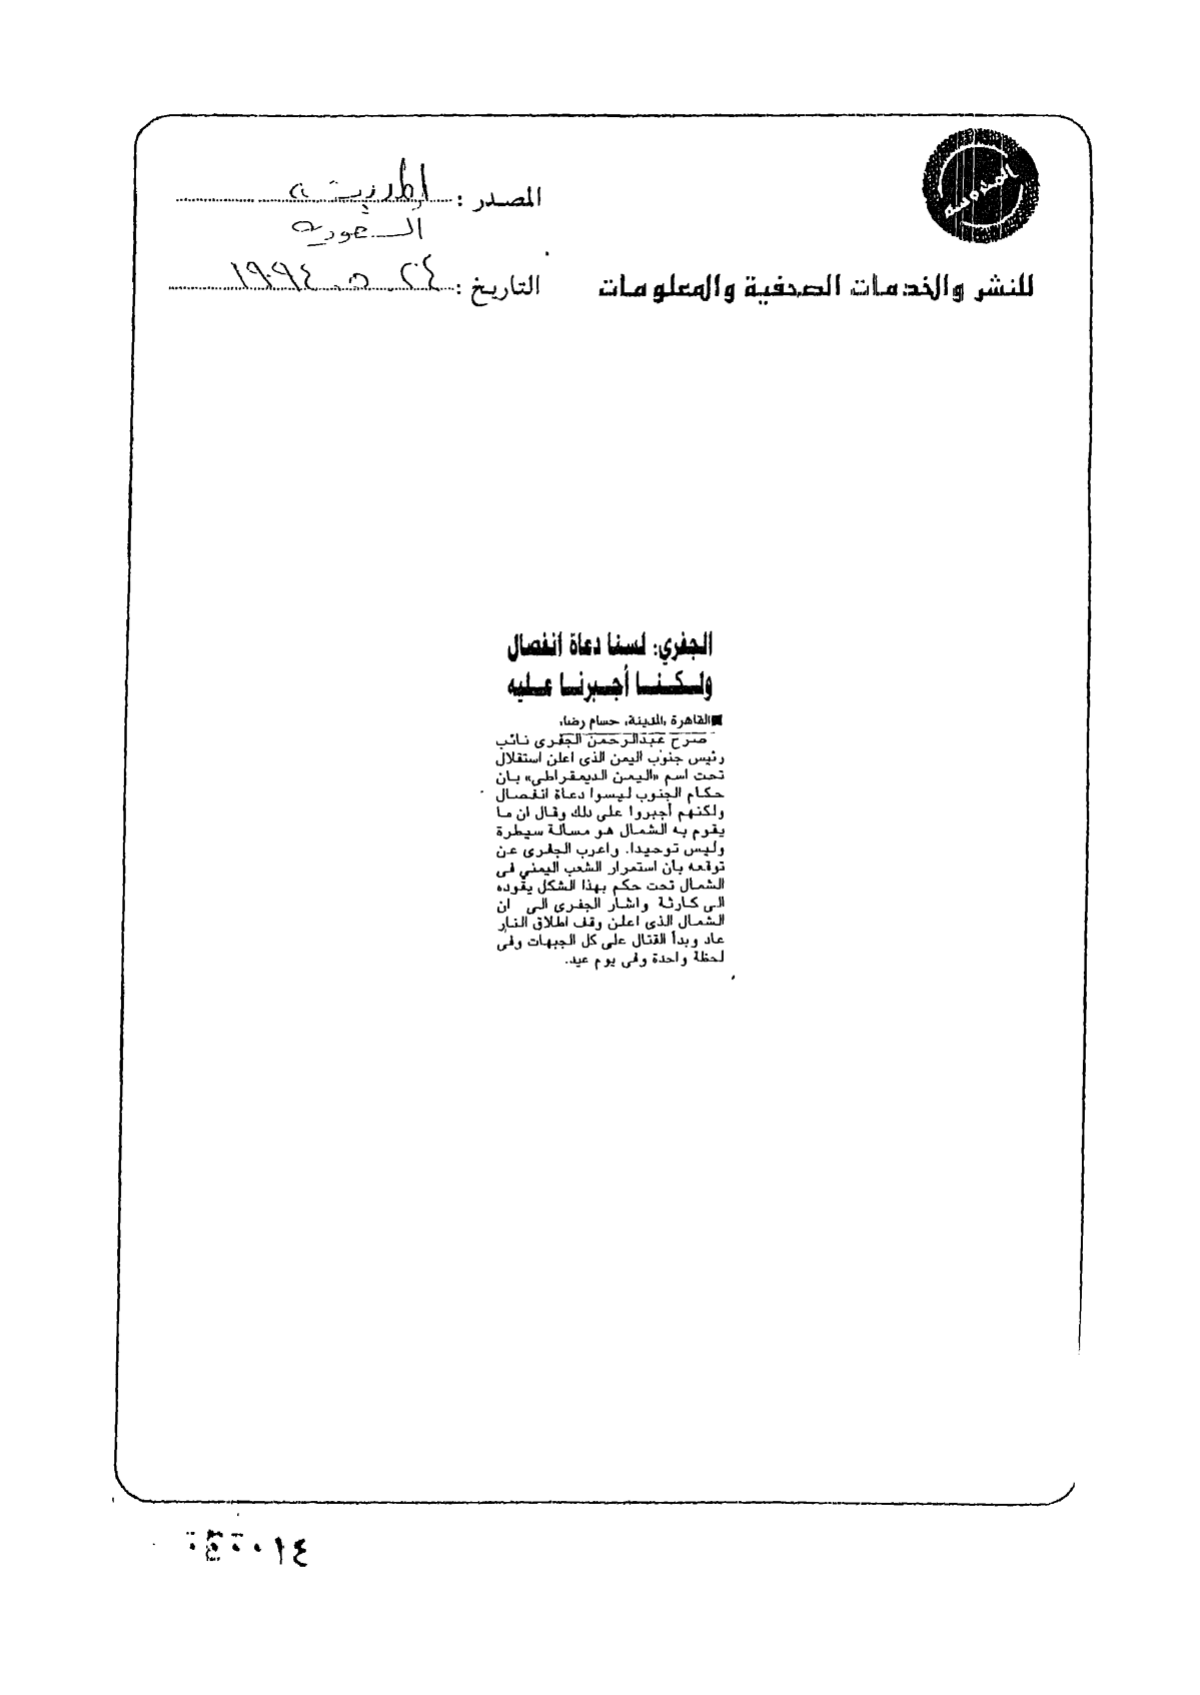 المصدر : المدينة
السعودية
للنشر والخدمات الصحفية والمعلومات
التاريخ : ٢٤ . ٥ . ١٩٩٤
الجفري: لسنا دعاة انفصال
ولكننا أجبرنا عليه
القاهرة «المدينة» حسام رضا:
صرح عبدالرحمن الجفرى نائب
رئيس جنوب اليمن الذى اعلن استقلال
تحت اسم «اليمن الديمقراطى» بان
حكام الجنوب ليسوا دعاة انفصال
ولكنهم أجبروا على ذلك وقال ان ما
يقوم به الشمال هو مسألة سيطرة
وليس توحيدا. واعرب الجفرى عن
توقعه بأن استمرار الشعب اليمني فى
الشمال تحت حكم بهذا الشكل يقوده
الى كارثة واشار الجفرى الى ان
الشمال الذى اعلن وقف اطلاق النار
عاد وبدأ القتال على كل الجبهات وفى
لحظة واحدة وفى يوم عيد.